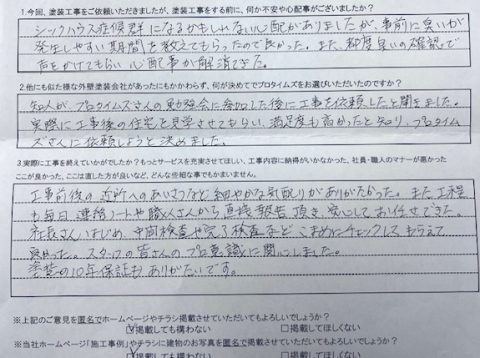 1.今回、塗装工事をご依頼いただきましたが、塗装工事をする前に、何か不安や心配事がございましたか?
シックハウス症候群になるかもしれない心配がありましたが、事前に臭いが
発生しやすい期間を教えてもらったので良かった。また、都度臭いの確認で
声をかけてもらい心配事が解消できた。
2.他にも似た様な外壁塗装会社があったにもかかわらず、何が決めてでプロタイムズをお選びいただいたのですか?
知人が、プロタイムズさんの勉強会に参加した後に工事を依頼したと聞きました。
実際に工事後の住宅を見学させてもらい、満足度も高かったと知り、プロタイム
ズさんに依頼しようと決めました。
3.実際に工事を終えていかがでしたか?もっとサービスを充実させてほしい、工事内容に納得がいかなかった、社員・職人のマナーが悪かった
ここが良かった、ここは直した方が良いなど、どんな些細な事でもかまいません。
工事前後の近所へのあいさつなど細やかな気配りがありがたかった。また工程
も毎日連絡ノートや職人さんから直接報告頂き、安心してお任せできた。
社長さんはじめ、中間検査や完了検査など こまめにチェックしてもらえて
良かった。スタッフの皆さんのプロ意識に関心しました。
塗装の10年保証もありがたいです。
※上記のご意見を匿名でホームページやチラシ掲載させていただいてもよろしいでしょうか?
☑掲載しても構わない □掲載してほしくない
※当社ホームページ「施工事例」やチラシに建物のお写真を匿名で掲載させていただいてもよろしいでしょうか?
☑掲載しても構わない □掲載してほしくない